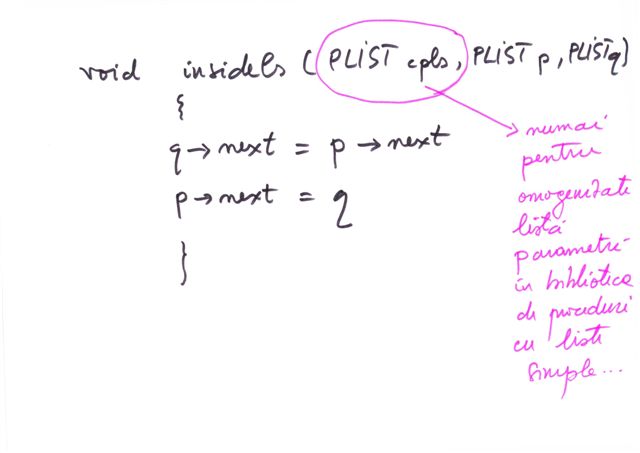 void insidels (PLIST cpls, PLIST p, PLIST q)
{
q → next = p → next
p → next = q
}
→ numai
pentru
omogenitate
listă
parametri
in biblioteca
de proceduri
cu liste
simple...